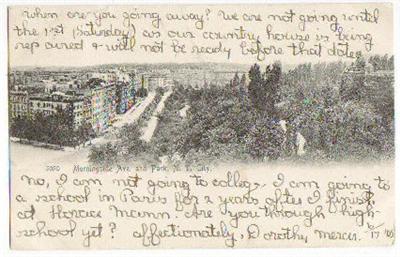 when are you going away? We are not going until
the 1st (Saturday) as our country house is being
repaired & will not be ready before that date.
Morningside Ave. and Park, N. Y. City.
No, I am not going to college, I am going to
a school in Paris for 2 years after I finish
at Horace Mann. Are you through high-
school yet? affectionately, Dorothy